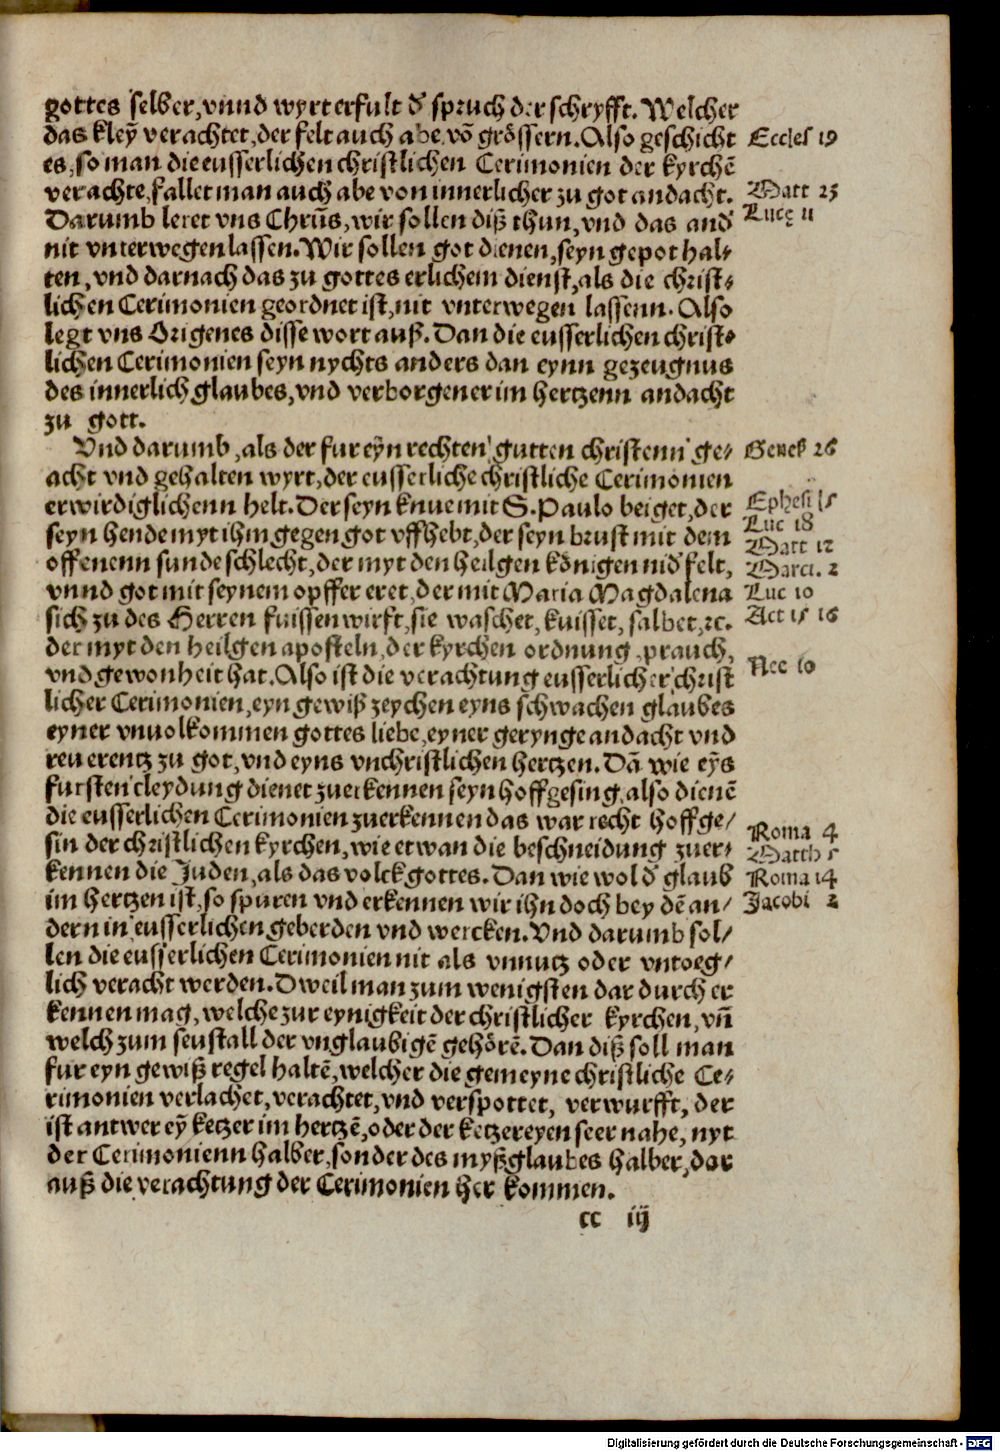 gottes selber, vnnd wyrt erfult d' spruch der schryfft. Welcher
das kleÿ verachtet, der felt auch abe võ grössern. Also geschicht
es, so man die eusserlichen christlichen Cerimonien der kyrchẽ
verachte, fallet man auch abe von innerlicher zu got andacht.
Darumb leret vns Chrũs, wir sollen diß thun, vnd das and'
nit vnterwegen lassen. Wir sollen got dienen, seyn gepot hal⸗
ten, vnd darnach das zu gottes erlichem dienst, als die christ⸗
lichen Cerimonien geordnet ist, nit vnterwegen lassenn. Also
legt vns Origenes disse wort auß. Dan die eusserlichen christ⸗
lichen Cerimonien seyn nychts anders dan eynn gezeugnus
des innerlich glaubes, vnd verborgener im hertzenn andacht
zu gott.
Vnd darumb, als der fur eỹn rechten gutten christenn ge⸗
acht vnd gehalten wyrt, der eusserliche christliche Cerimonien
erwirdiglichenn helt. Der seyn knue mit S. Paulo beiget, der
seyn hende myt ihm gegen got vffhebt, der seyn brust mit dem
offenenn sunde schlecht, der myt den heilgen königen nid' felt,
vnnd got mit seynem opffer eret, der mit Maria Magdalena
sich zu des Herren fuissen wirft, sie waschet, kuisset, salbet, ꝛc.
der myt den heilgen aposteln, der kyrchen ordnung prauch,
vnd gewonheit hat. Also ist die verachtung eusserlicher christ
licher Cerimonien, eyn gewiß zeychen eyns schwachen glaubes
eyner vnuolkommen gottes liebe, eyner gerynge andacht vnd
reuerentz zu got, vnd eyns vnchristlichen hertzen. Dã wie eỹs
fursten cleydung dienet zuerkennen seyn hoffgesing, also dienẽ
die eusserlichen Cerimonien zuerkennen das war recht hoffge⸗
sin der christlichen kyrchen, wie etwan die beschneidung zuer⸗
kennen die Juden, als das volck gottes. Dan wie wol d' glaub
im hertzen ist, so spuren vnd erkennen wir ihn doch bey dẽ an⸗
dern in eusserlichen geberden vnd wercken. Vnd darumb sol⸗
len die eusserlichen Cerimonien nit als vnnutz oder vntoeg⸗
lich veracht werden. Dweil man zum wenigsten dar durch er
kennen mag, welche zur eynigkeit der christlicher kyrchen, vñ
welch zum seustall der vnglaubigẽ gehörẽ. Dan diß soll man
fur eyn gewiß regel haltẽ, welcher die gemeyne christliche Ce⸗
rimonien verlachet, verachtet, vnd verspottet, verwurfft, der
ist antwer eỹ ketzer im hertzẽ, oder der ketzereyen seer nahe, nyt
der Cerimonienn halber, sonder des myßglaubes halber, dar
auß die verachtung der Cerimonien her kommen.
cc iij
Eccles 19
Matt 23
Luce 11
Genes 26
Ephesi 15
Luc 18
Matt 12
Marci. 2
Luc 10
Act 15 16
Nee 10
Roma 4
Matth 5
Roma 14
Jacobi 2
Digitalisierung gefördert durch die Deutsche Forschungsgemeinschaft - DFG